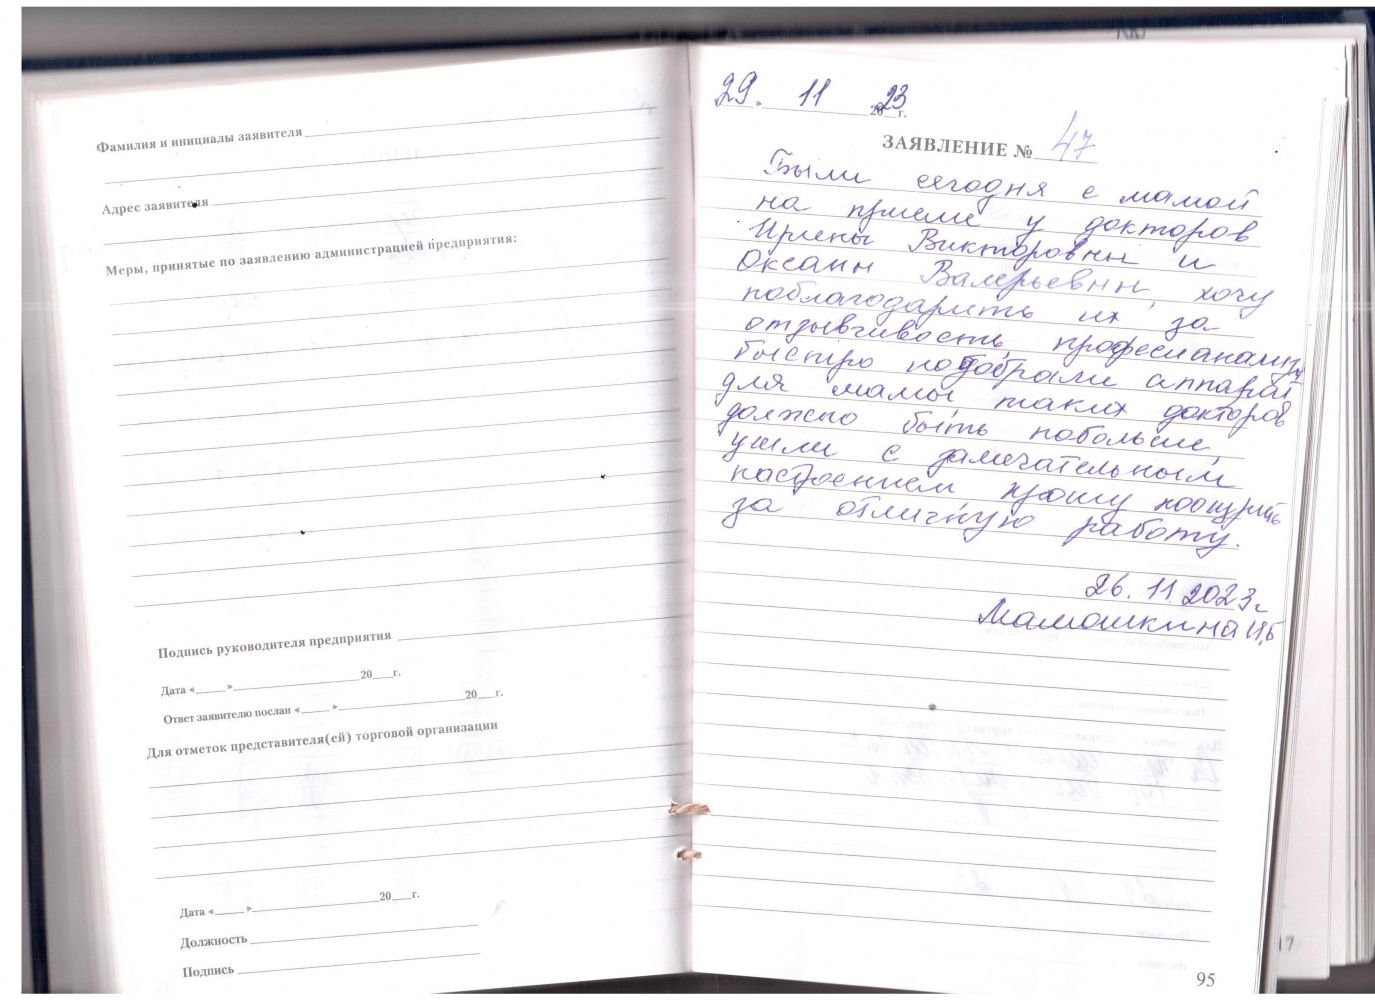 Фамилия и инициалы заявителя
Адрес заявителя
Меры, принятые по заявлению администрацией предприятия:
Подпись руководителя предприятия
Дата «____» ____ 20__г.
Ответ заявителю послан «____» ____ 20__г.
Для отметок представителя(ей) торговой организации
Дата «____» ____ 20__г.
Должность
Подпись
29 » 11 2023г.
ЗАЯВЛЕНИЕ № 47
Были сегодня с мамой
на приеме у докторов
Ирины Викторовны и
Оксаны Валерьевны, хочу
поблагодарить их за
отзывчивость,
быстро подобрали аппарат
для мамы, таких докторов
должно быть побольше,
ушли с замечательным
настроением прошу поощрить
за отличную работу.
26.11.2023г
Мамошкина И,Б
95
17